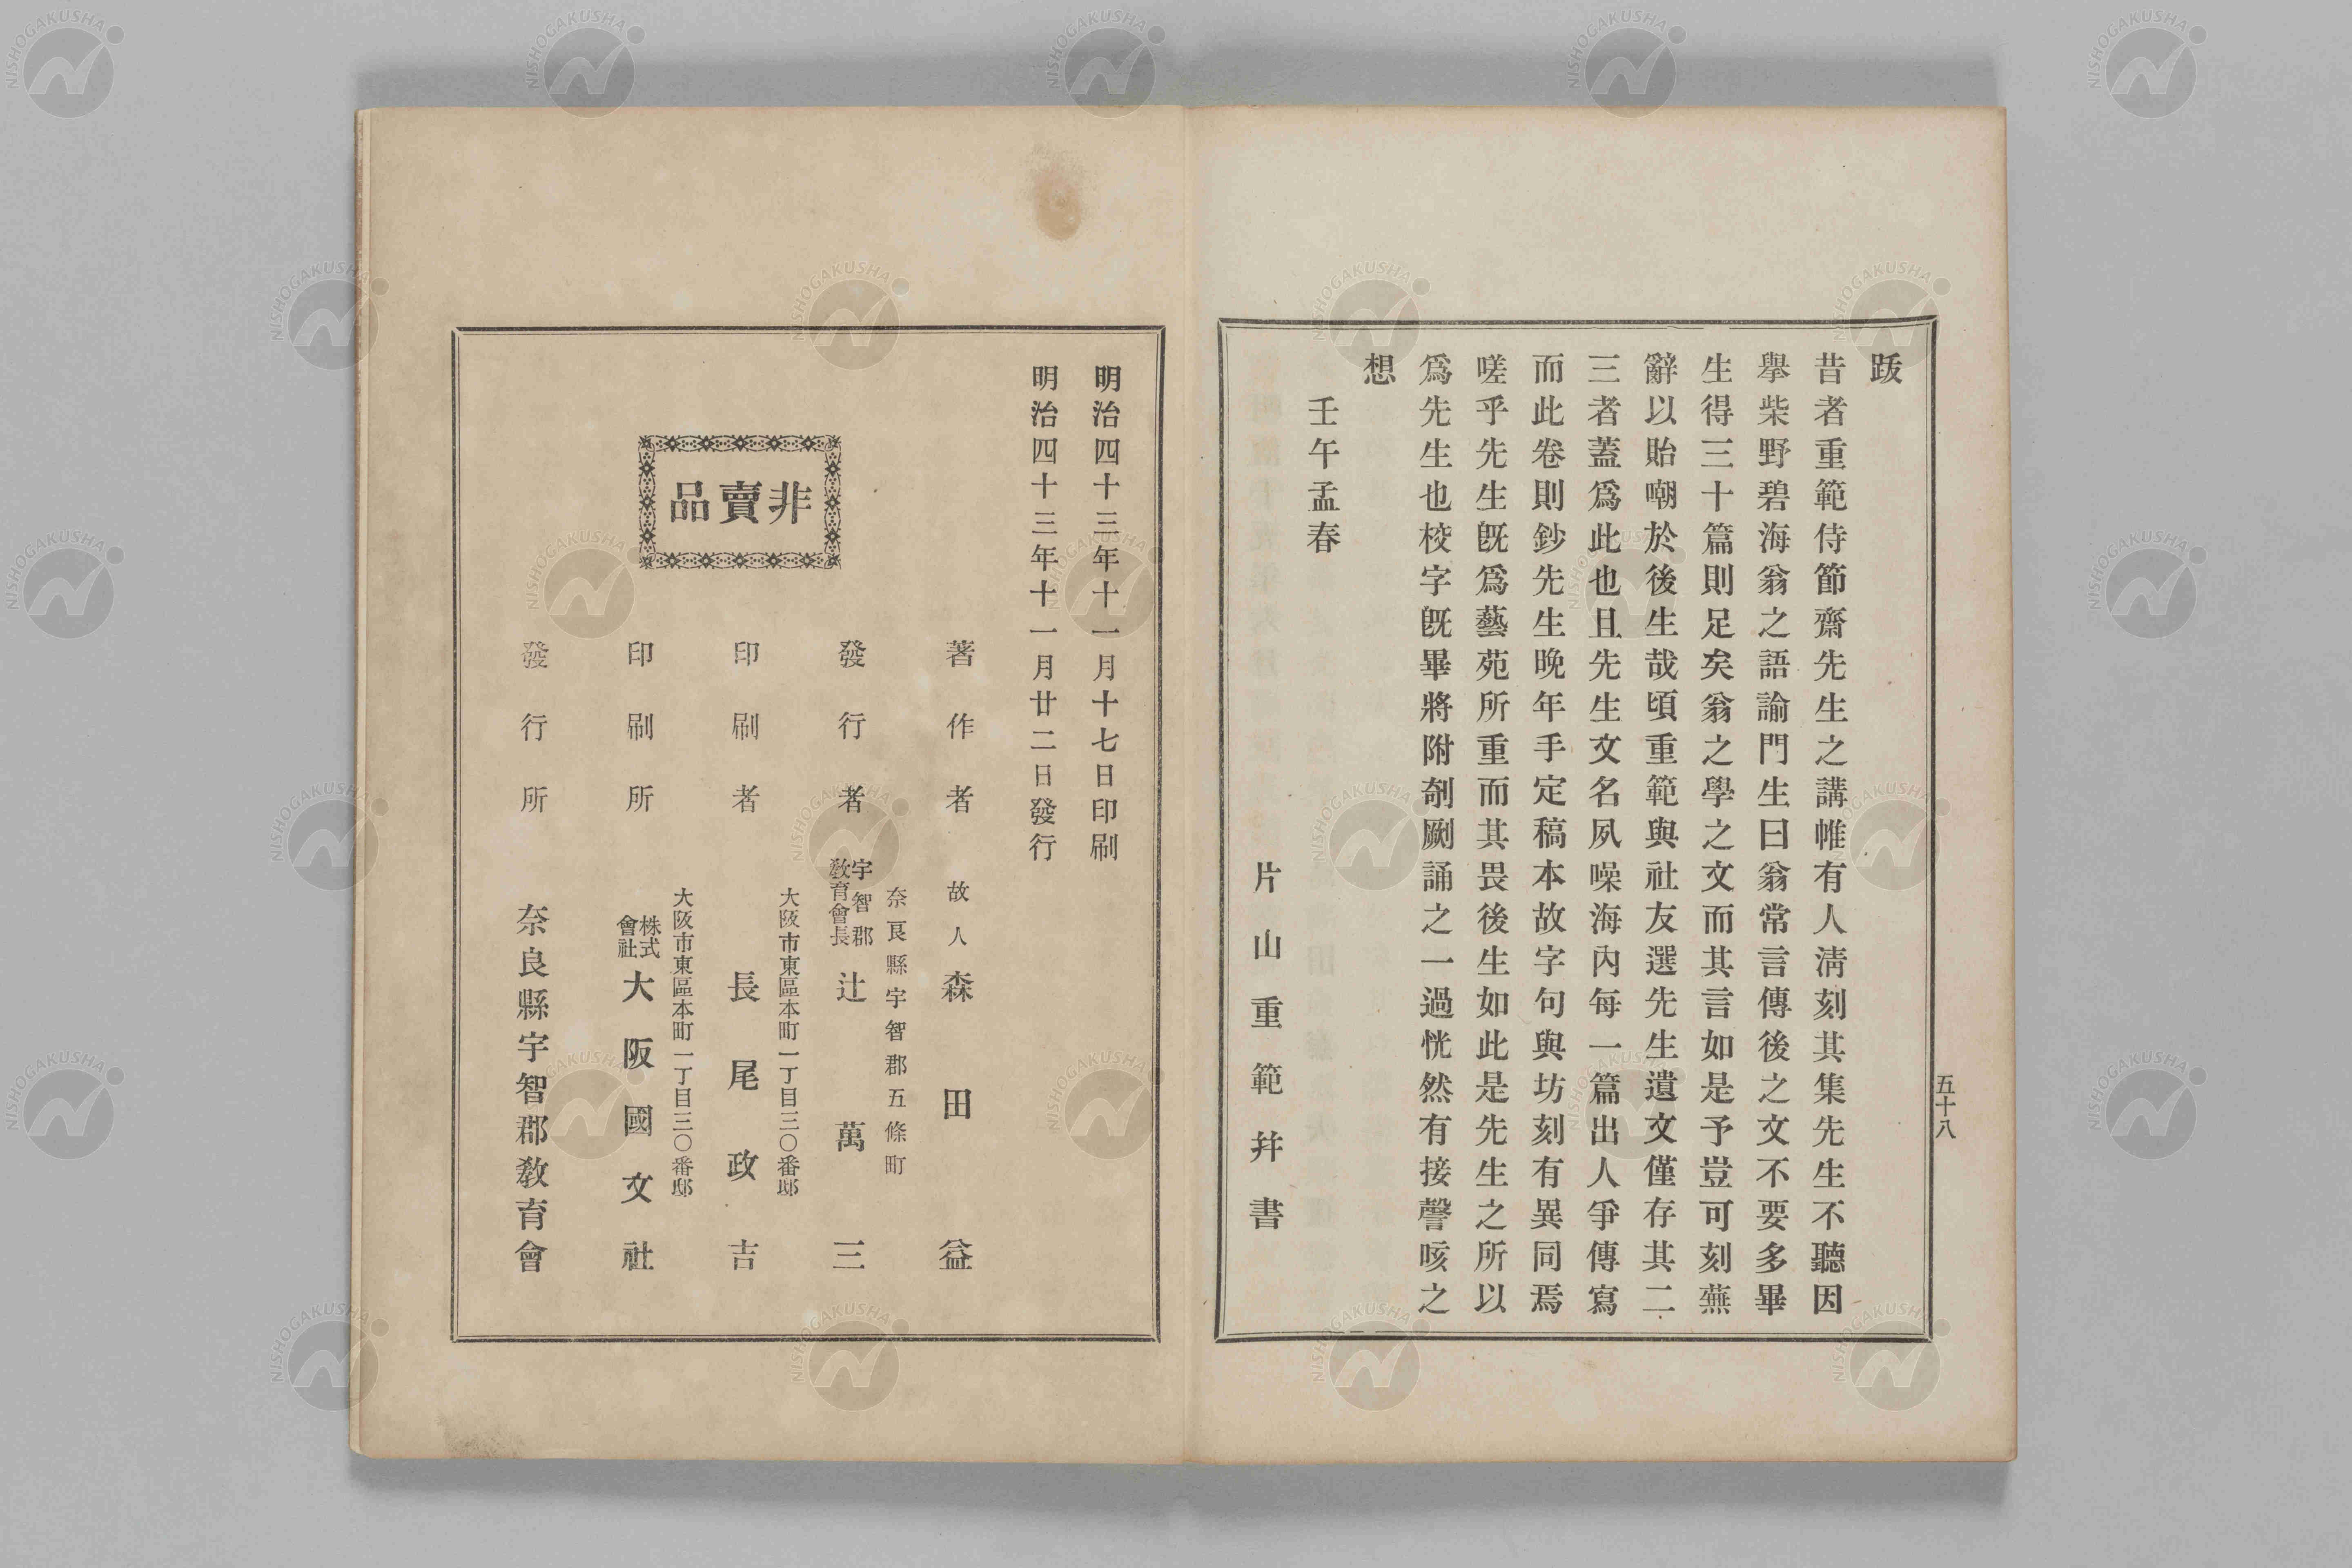 跋
昔者重範侍節齋先生之講帷有人淸刻其集先生不聽因
擧柴野碧海翁之語諭門生曰翁常言傳後之文不要多畢
生得三十篇則足矣翁之學之文而其言如是予豈可刻蕪
辭以貽嘲於後生哉頃重範與社友選先生遺文僅存其二
三者蓋爲此也且先生文名夙噪海內每一篇出人爭傳寫
而此卷則鈔先生晩年手定稿本故字句與坊刻有異同焉
嗟乎先生旣爲藝苑所重而其畏後生如此是先生之所以
爲先生也校字旣畢將附剞劂誦之一過恍然有接謦咳之
想
壬午孟春
片山重範幷書
五十八
明治四十三年十一月十七日印刷
明治四十三年十一月廿二日發行
非賣品
著作者 故人 森田益
奈良縣宇智郡五條町
發行者 宇智郡敎育會長 辻萬三
大阪市東區本町一丁目三〇番邸
印刷者 長尾政吉
大阪市東區本町一丁目三〇番邸
印刷所 株式會社 大阪國文社
發行所 奈良縣宇智郡敎育會
NISHOGAKUSHA